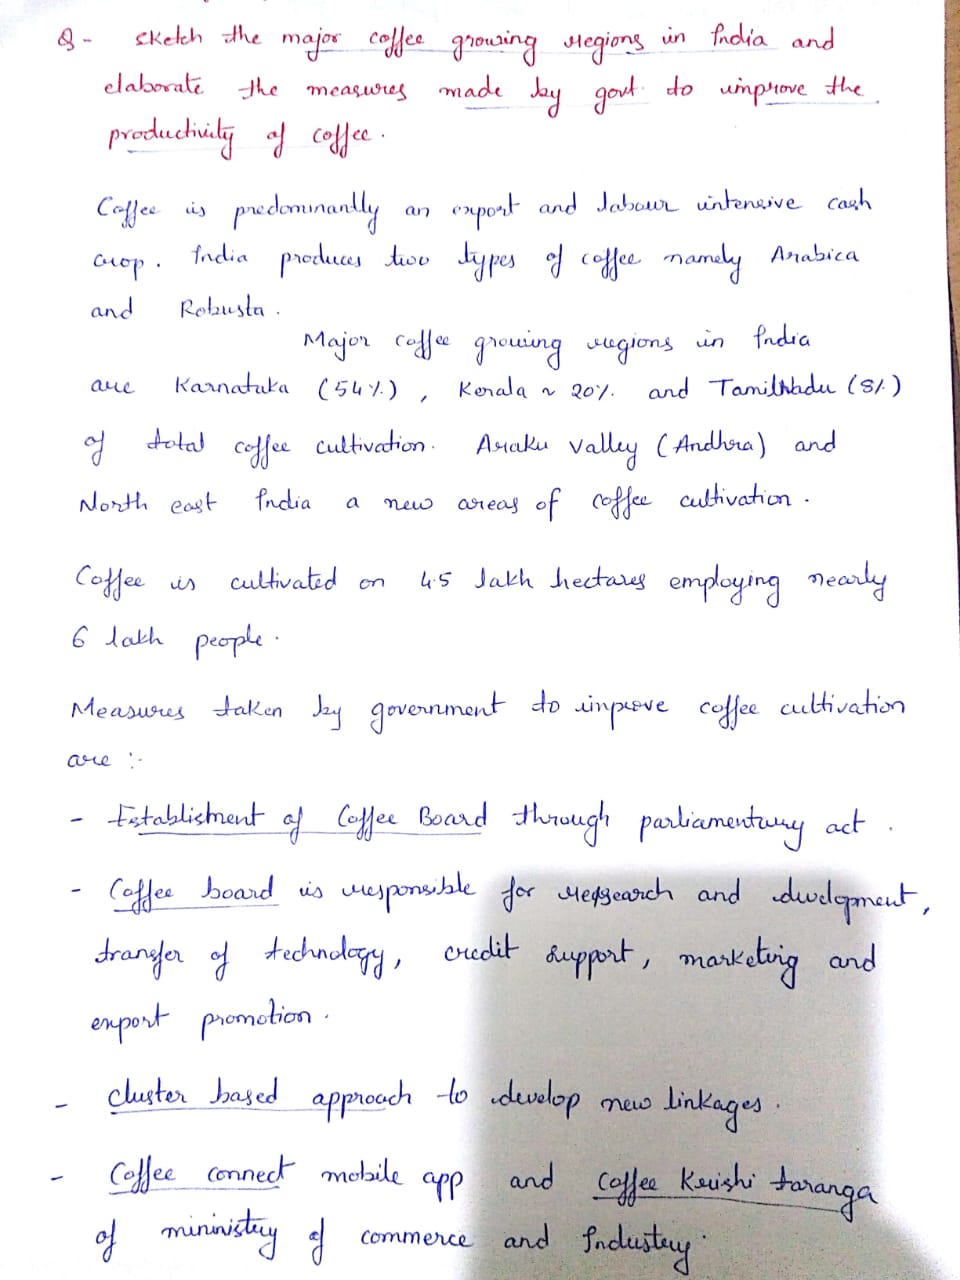 Q - Sketch the major coffee growing regions in India and
elaborate the measures made by govt. to improve the
productivity of coffee.
Coffee is predominantly an export and labour intensive cash
crop. India produces two types of coffee namely Arabica
and Robusta.
Major coffee growing regions in India
are Karnataka (54%), Kerala ~ 20% and Tamilnadu (8%)
of total coffee cultivation. Araku Valley (Andhra) and
North east India a new areas of coffee cultivation.
Coffee is cultivated on 4.5 lakh hectares employing nearly
6 lakh people.
Measures taken by government to improve coffee cultivation
are :-
- Establishment of Coffee Board through parliamentary act.
- Coffee board is responsible for research and development,
transfer of technology, credit support, marketing and
export promotion.
- Cluster based approach to develop new linkages.
- Coffee connect mobile app and Coffee Krishi taranga
of mininistry of commerce and Industry.